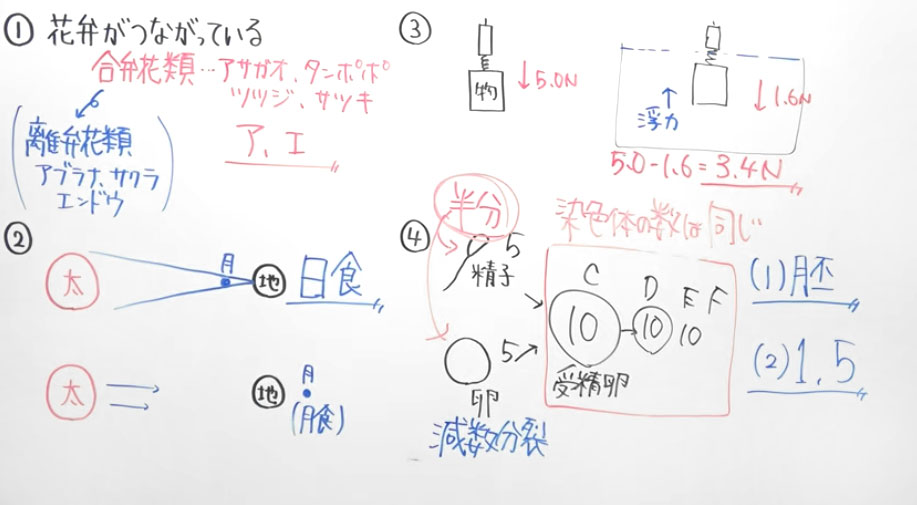 ① 花弁がつながっている
合弁花類…アサガオ、タンポポ
ツツジ、サツキ
ア、エ
離弁花類
アブラナ、サクラ
エンドウ
②
太
月
地
日食
太
地
月
(月食)
③
物
↓5.0N
↑
浮力
↓1.6N
5.0-1.6=3.4N
④
半分
5
精子
5
卵
減数分裂
染色体の数は同じ
C
D
E F
10
10
10
受精卵
(1)胚
(2)1.5